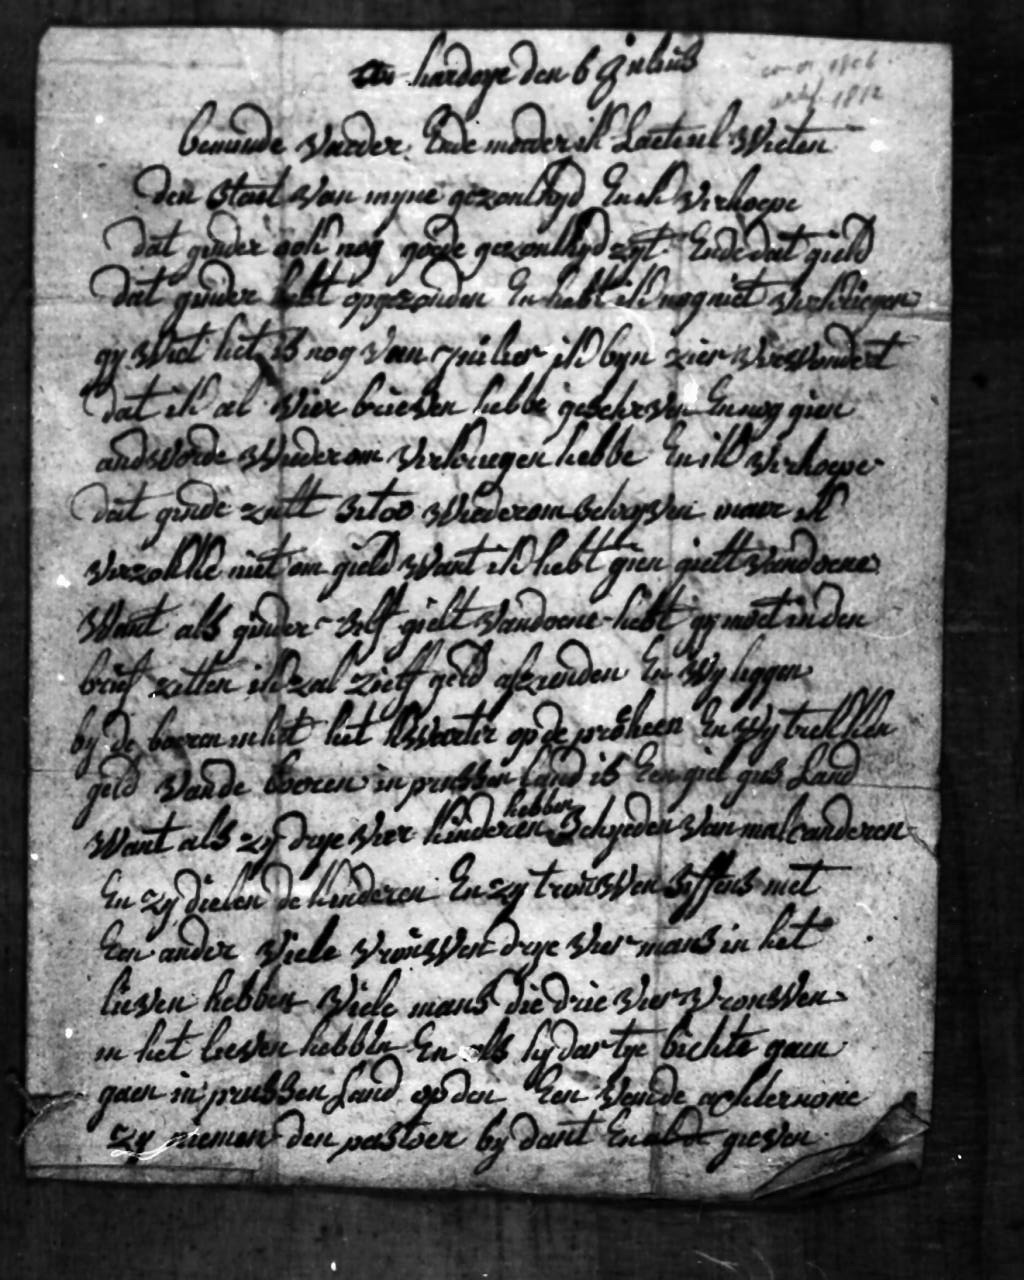 hardoye den 6 Julius
1812
beminde vaeder Ende moeder ik Laet ul Weten
den Staet van myne gezonthyd En ik verhoepe
dat ginder ook nog goede gezontheyd zyt Ende dat gield
dat ginder hebt opgezonden En hebt ik nog niet verkriegen
gy Wiet het is nog van ik byn zier verwondert
dat ik al vier brieven hebbe geschreven En nog gien
andworde Wiederom verkriegen hebbe En ik verhoepe
dat ginde zult Wiederom Schryven maer ik
verzokke niet om gield Want ik hebt gien gielt vandoene
Want als ginder zelf gielt vandoene hebt gy moet in den
brief zetten ik zal zielf geld afzenden En Wy liggen
by de boeren in het het kwartier op de En Wy trekken
geld van de boeren in prussen Land is Een giel gus Land
Want als zy drye vier kinderen hebben Schyeden van malcanderen
En zy dielen de kinderen En zy trouwen met
Een ander viele vrouwen drye vier mans in het
lieven hebben viele mans die drie vier vrouwen
in het leeven hebben En als zy daer te bichte gaen
gaen in prussen Land op den Een achternone
zy niemen den pastoer by dant En gieven